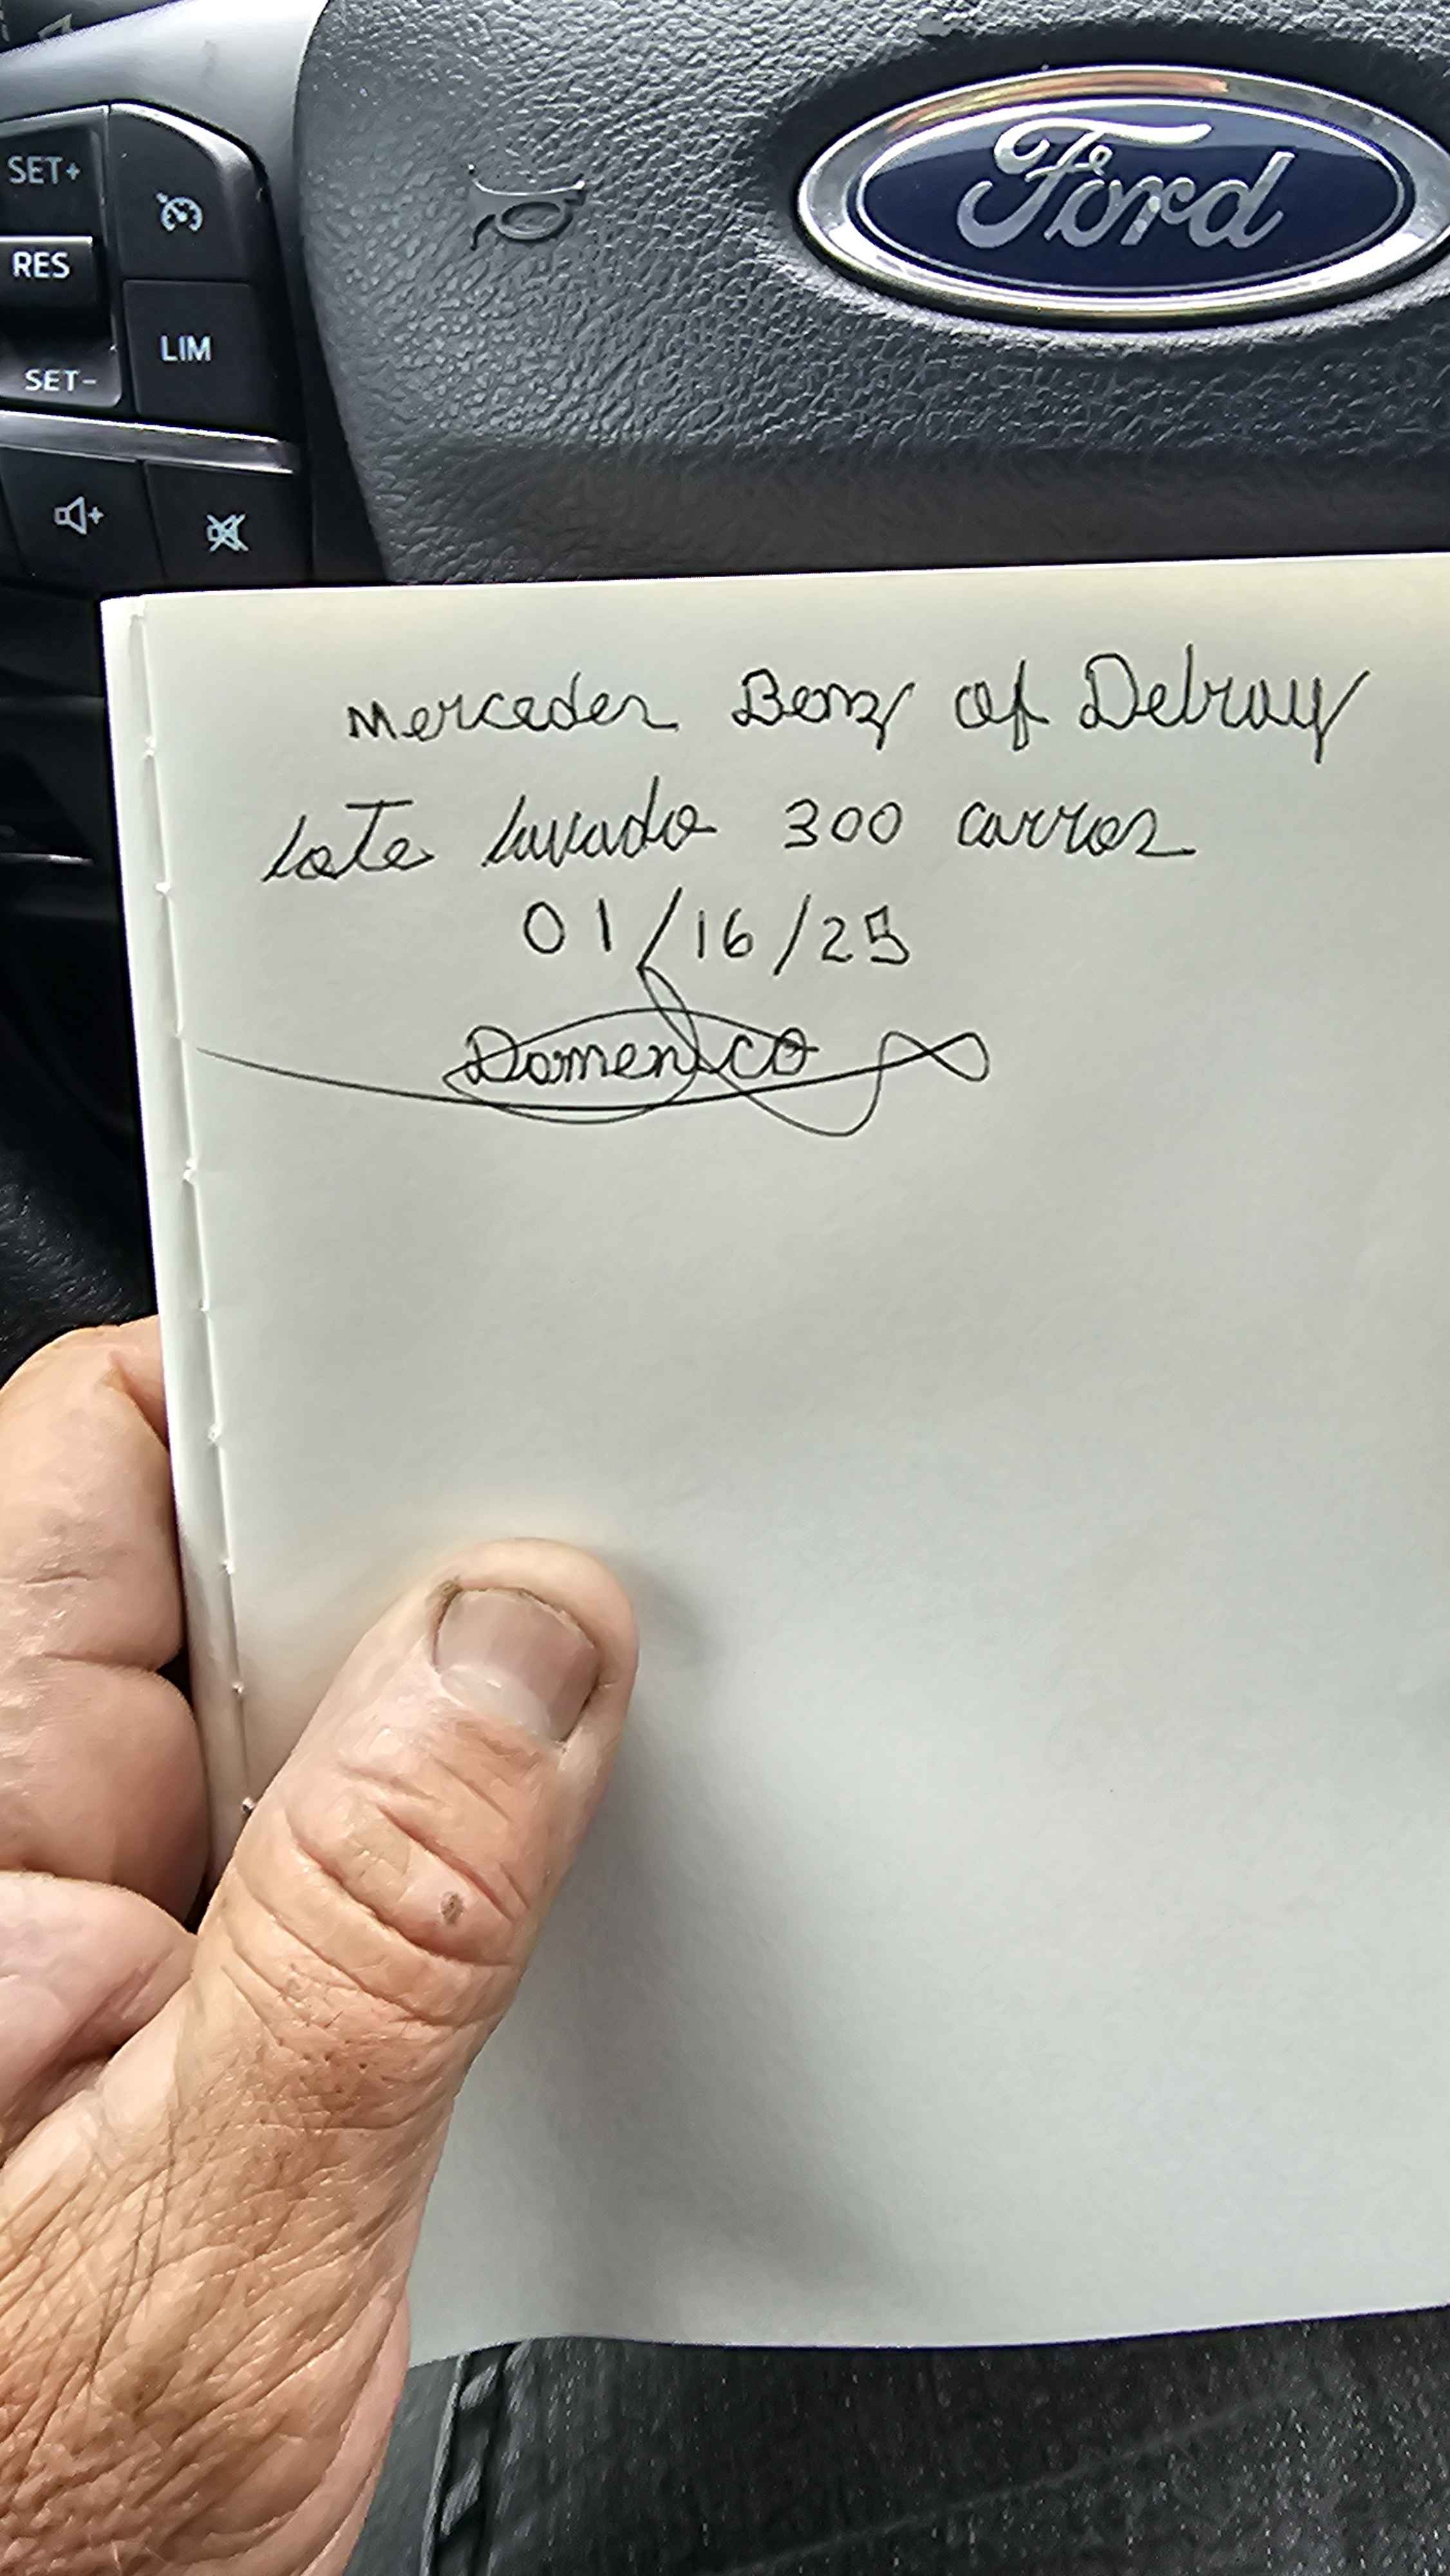 SET+
RES
SET-
LIM
Ford
Mercedes Benz of Delray
Lote lavado 300 carros
01/16/25
Domenico